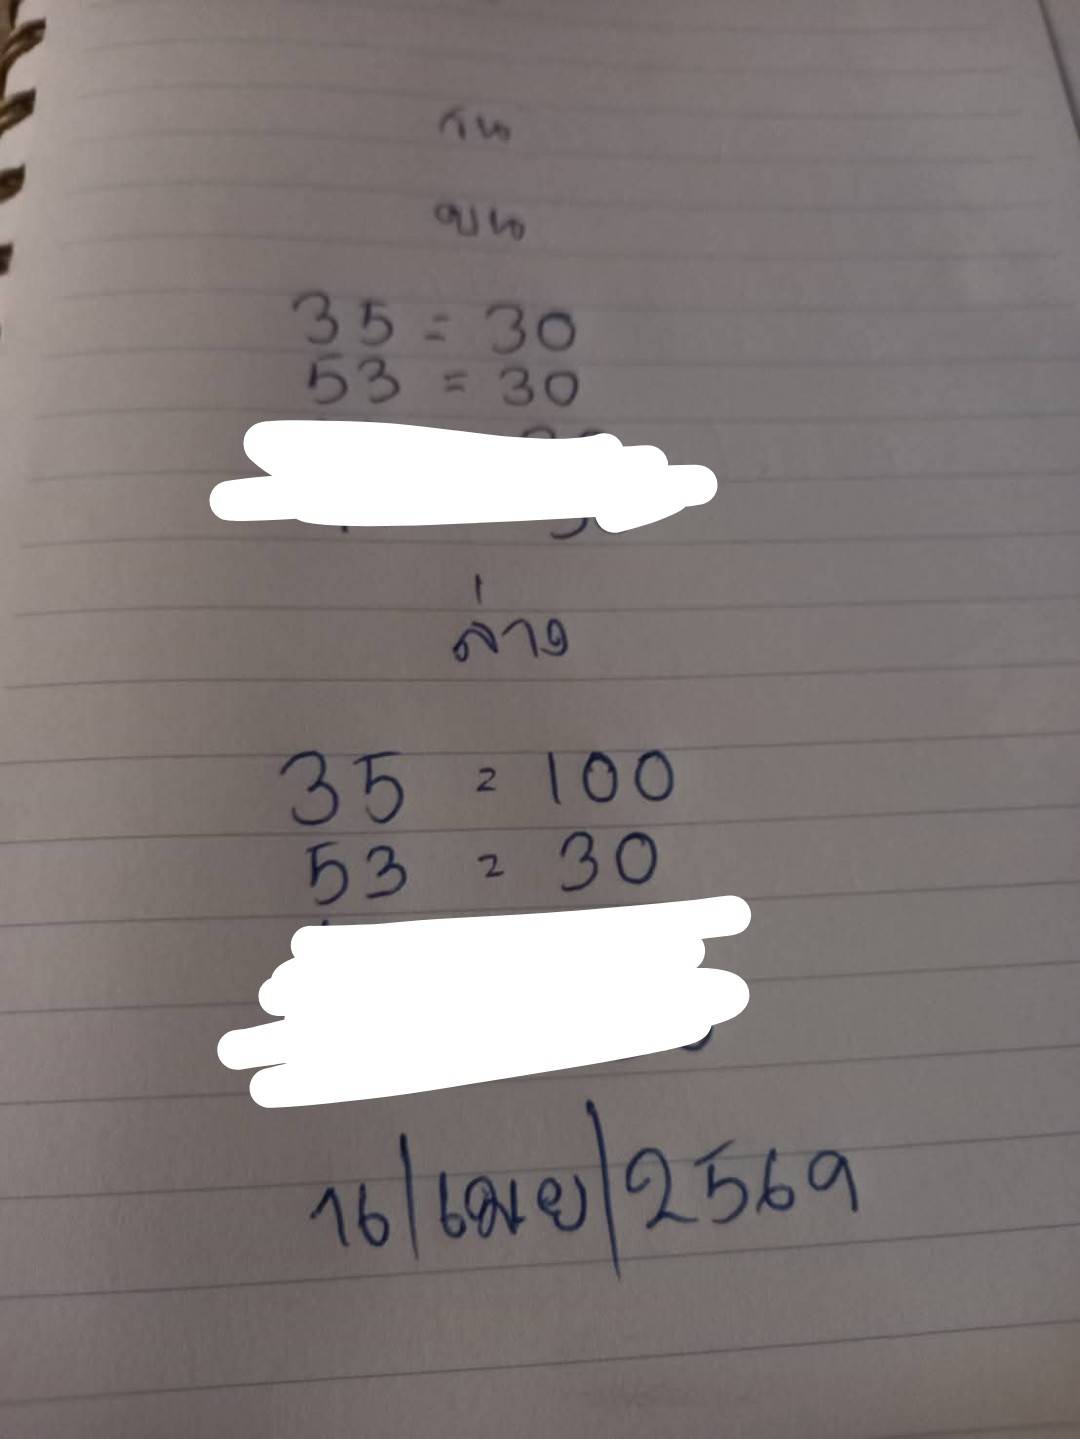 กน
บน
35 = 30
53 = 30
ล่าง
35 = 100
53 = 30
16/เมย/2569